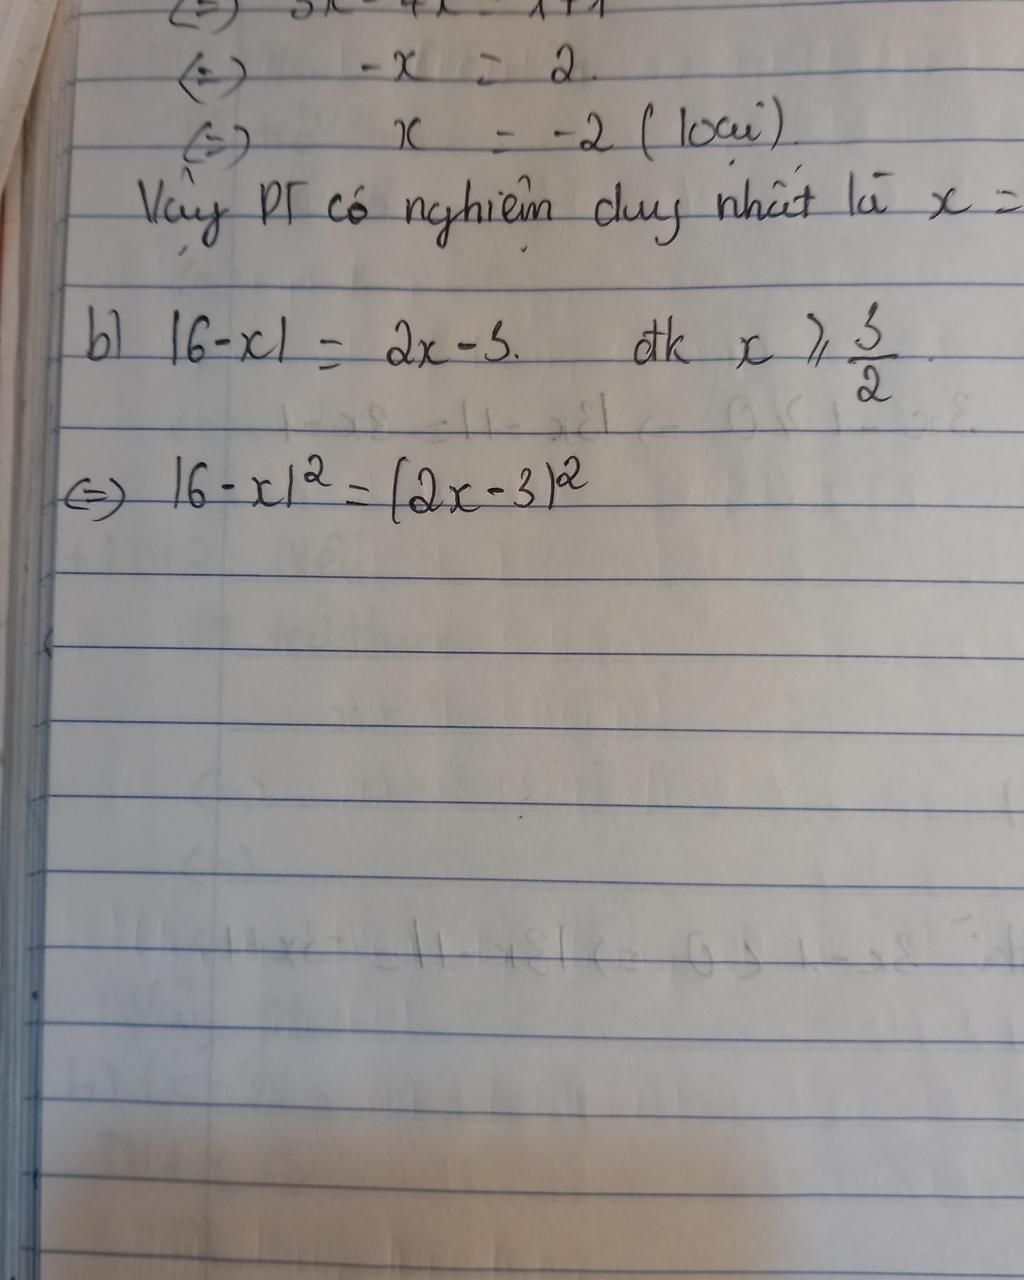 (=) 3x - 4x = 1+1
(=) -x = 2.
(=) x = -2 (loại)
Vậy PT có nghiệm duy nhất là x =
b) |6-x| = 2x-3. đk x ⩾ 3/2
(=) |6-x|² = (2x-3)²